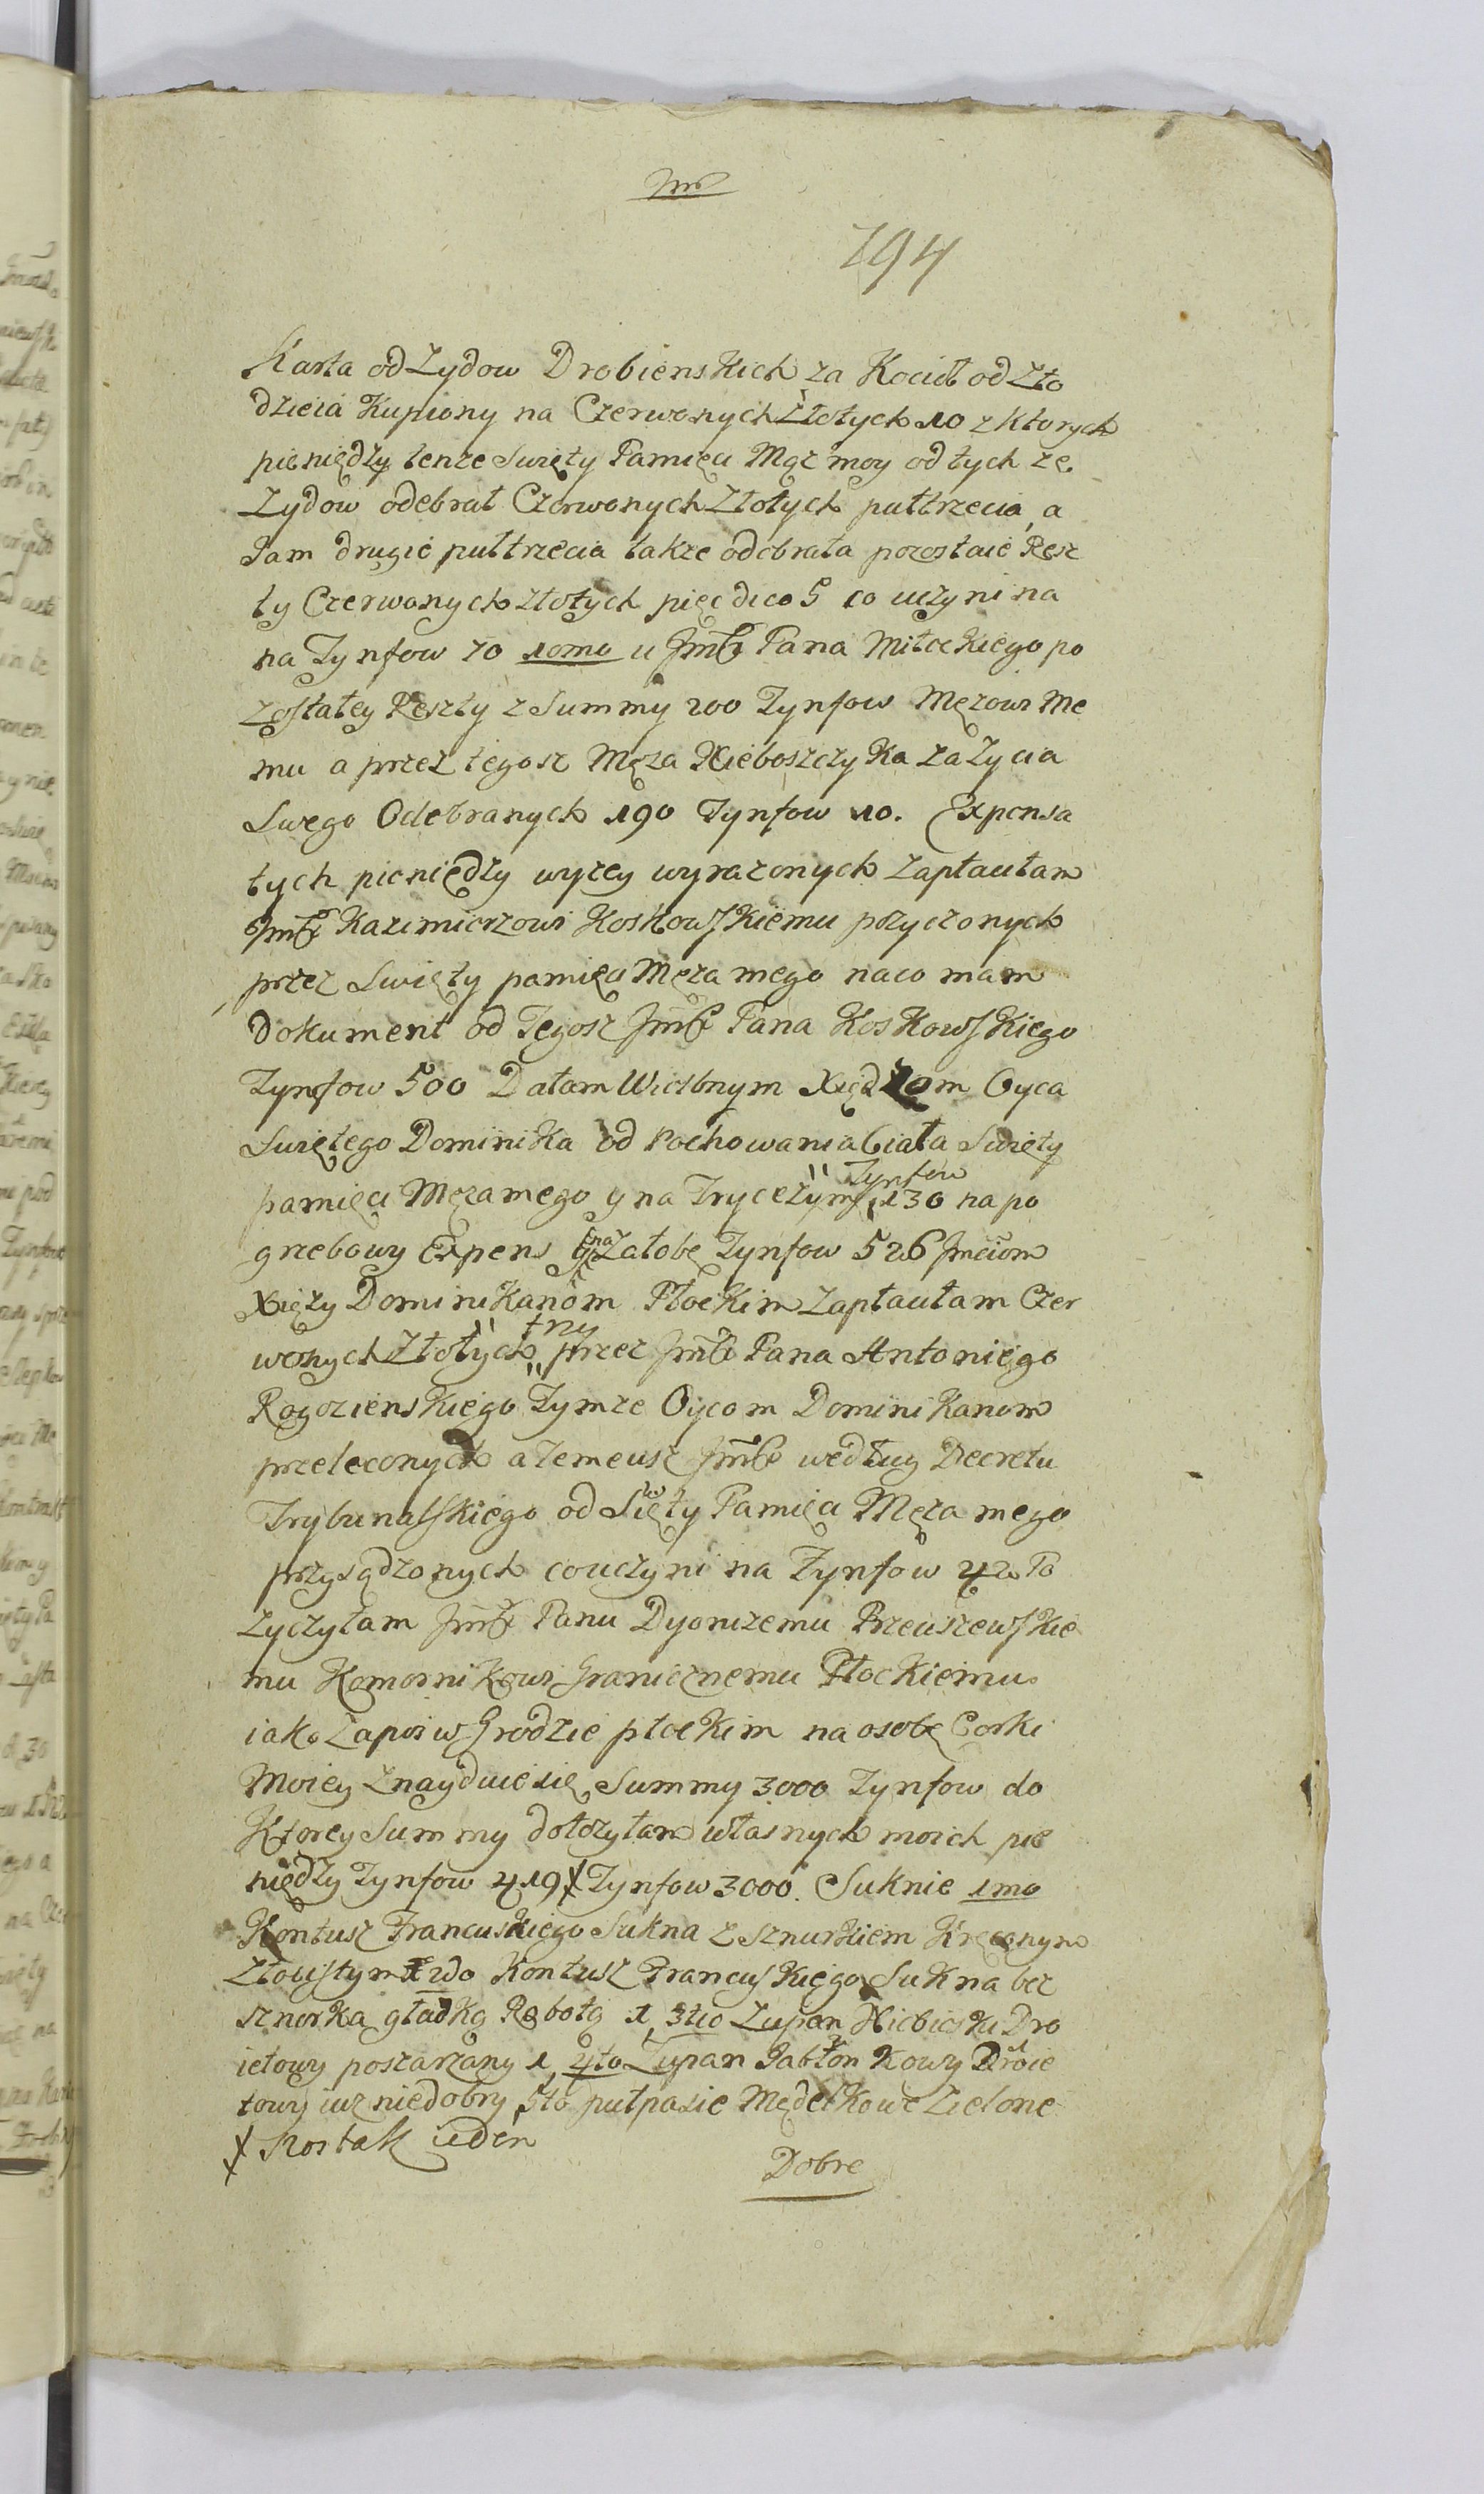 194
Karta od Zydow Drobienskich za Kocioł od Zło
dzieia Kupiony na Czerwonych Złotych 10 z ktorych
pieniędzy tenze Swięty Pamięci Mąz moy od tych ze
Zydow odebrał Czerwonych Złotych pułtrzecia, a
Jam drugie pułtrzecia takze odebrała pozostaie Resz
ty Czerwonych złotych pięc dico 5 co uczyni na
na Tynfow 70 10mo u Jmć Pana Miłockiego po
zostałey Reszty z Summy 200 Tynfow Męzowi Me
mu a przez tegosz Męza Nieboszczyka za Zycia
Swego Odebranych 190 Tynfow 10. Expensa
tych pieniędzy wyzey wyrazonych zapłaciłam
Jmć Kazimierzowi Koskowskiemu pozyczonych
przez Swięty pamięci Męza mego na co mam
Dokument od Tegosz Jmć Pana Koskowskiego
Tynfow 500 Dałam Wielbnym Xiędzom Oyca
Swiętego Dominika od Pochowania Ciała Swięty
pamięci Męza mego y na Trycezym Tynfow 130 na po
grzebowy Expens y na Załobę Tynfow 526 Jmciom
Xięzy Dominikanom Płockim zapłaciłam Czer
wonych Złotych trzy przez Jmć Pana Antoniego
Rogozienskiego Tymze Oycom Dominikanom
przeleconych a Temeusz Jmć według Decretu
Trybunalskiego od Swięty Pamięci Męza mego
przysądzonych co uczyni na Tynfow 42 Po
zyczyłam Jmć Panu Dyonizemu Przeuszewskie
mu Komornikowi Granicznemu Płockiemu
iako Zapis w Grodzie płockim na osobę Corki
Moiey znayduie się Summy 3000 Tynfow do
Ktorey Summy dołozyłam własnych moich pie
niędzy Tynfow 419 ҂ Tynfow 3000. Suknie 1mo
Kontusz Francuskiego Sukna z Sznurkiem Kręconym
Złocistym 1 2do Kontusz Francuskiego Sukna bez
sznorka gładką Robotą 1, 3tio Zupan Niebieski Dro
ietowy poszarzany 1, 4to Zupan Jabłonkowy Droie
towy iuz niedobry, 5to pułpasie Mędelkowe Zielone
҂ Szostak ieden
Dobre